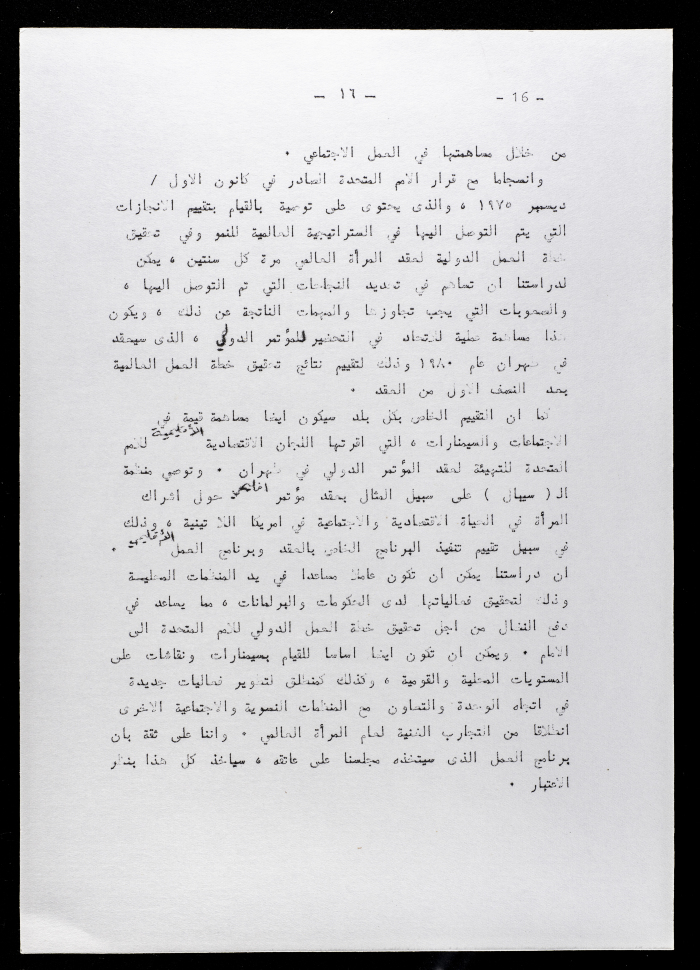 - ١٦ -
- 16 -
من خلال مساهمتها في العمل الاجتماعي ٠
وانسجاما مع قرار الامم المتحدة الصادر في كانون الاول /
ديسمبر ١٩٧٥ ، والذى يحتوى على توصية بالقيام بتقييم الانجازات
التي يتم التوصل اليها في الستراتيجية العالمية للنمو وفي تحقيق
خطة العمل الدولية لعقد المرأة العالمي مرة كل سنتين ، يمكن
لدراستنا ان تساهم في تحديد النجاحات التي تم التوصل اليها ،
والصعوبات التي يجب تجاوزها والمهمات الناتجة عن ذلك ، ويكون
هذا مساهمة عملية للاتحاد في التحضير للمؤتمر الدولي ، الذى سيعقد
في طهران عام ١٩٨٠ وذلك لتقييم نتائج تحقيق خطة العمل العالمية
بعد النصف الاول من العقد ٠
كما ان التقييم الخاص بكل بلد سيكون ايضا مساهمة قيمة في
الاجتماعات والسيمنارات الأقليمية ، التي اقرتها اللجان الاقتصادية للامم
المتحدة للتهيئة لعقد المؤتمر الدولي في طهران ٠ وتوصي منظمة
الـ ( سيبال ) على سبيل المثال بعقد مؤتمر حول اشراك
المرأة في الحياة الاقتصادية والاجتماعية في امريكا اللاتينية ، وذلك
في سبيل تقييم تنفيذ البرنامج الخاص بالعقد وبرنامج العمل الأقليمي ٠
ان دراستنا يمكن ان تكون عاملا مساعدا في يد المنظمات
وذلك لتحقيق فعالياتها لدى الحكومات والبرلمانات ، مما يساعد في
دفع النضال من اجل تحقيق خطة العمل الدولي للامم المتحدة الى
الامام ٠ ويمكن ان تكون ايضا اساسا للقيام بسيمنارات ونقاشات على
المستويات المحلية والقومية ، وكذلك كمنطلق لتطوير فعاليات جديدة
في اتجاه الوحدة والتعاون مع المنظمات النسوية والاجتماعية الاخرى
انطلاقا من التجارب الغنية لعام المرأة العالمي ٠ واننا على ثقة بان
برنامج العمل الذى سيتخذه مجلسنا على عاتقه ، سياخذ كل هذا بنظر
الاعتبار ٠